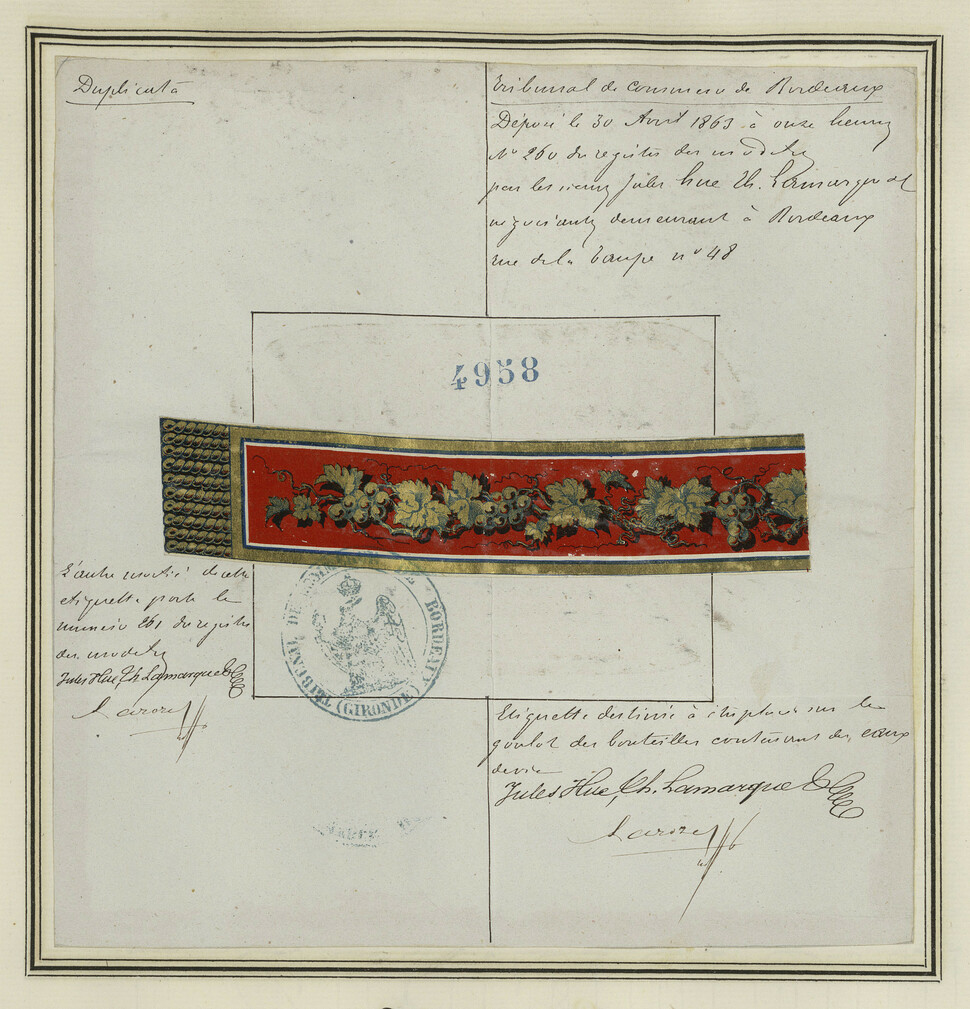 Duplicata
Tribunal de commerce de Bordeaux
Déposé le 30 Avril 1863 à onze heures
N° 260 du registre des modèles
par les sieurs Jules hue Th. Lamarque et
négociants demeurant à Bordeaux
rue de la Taupe n° 48
4958
L'autre moitié de cette
etiquette porte le
numéro 261 du registre
des modèles
Jules Hue, Th. Lamarque & Cie
TRIBUNAL DE COMMERCE DE BORDEAUX
(GIRONDE)
Etiquette destinée à être placée sur le
goulot des bouteilles contenant des eaux
de vie
Jules Hue, Th. Lamarque & Cie